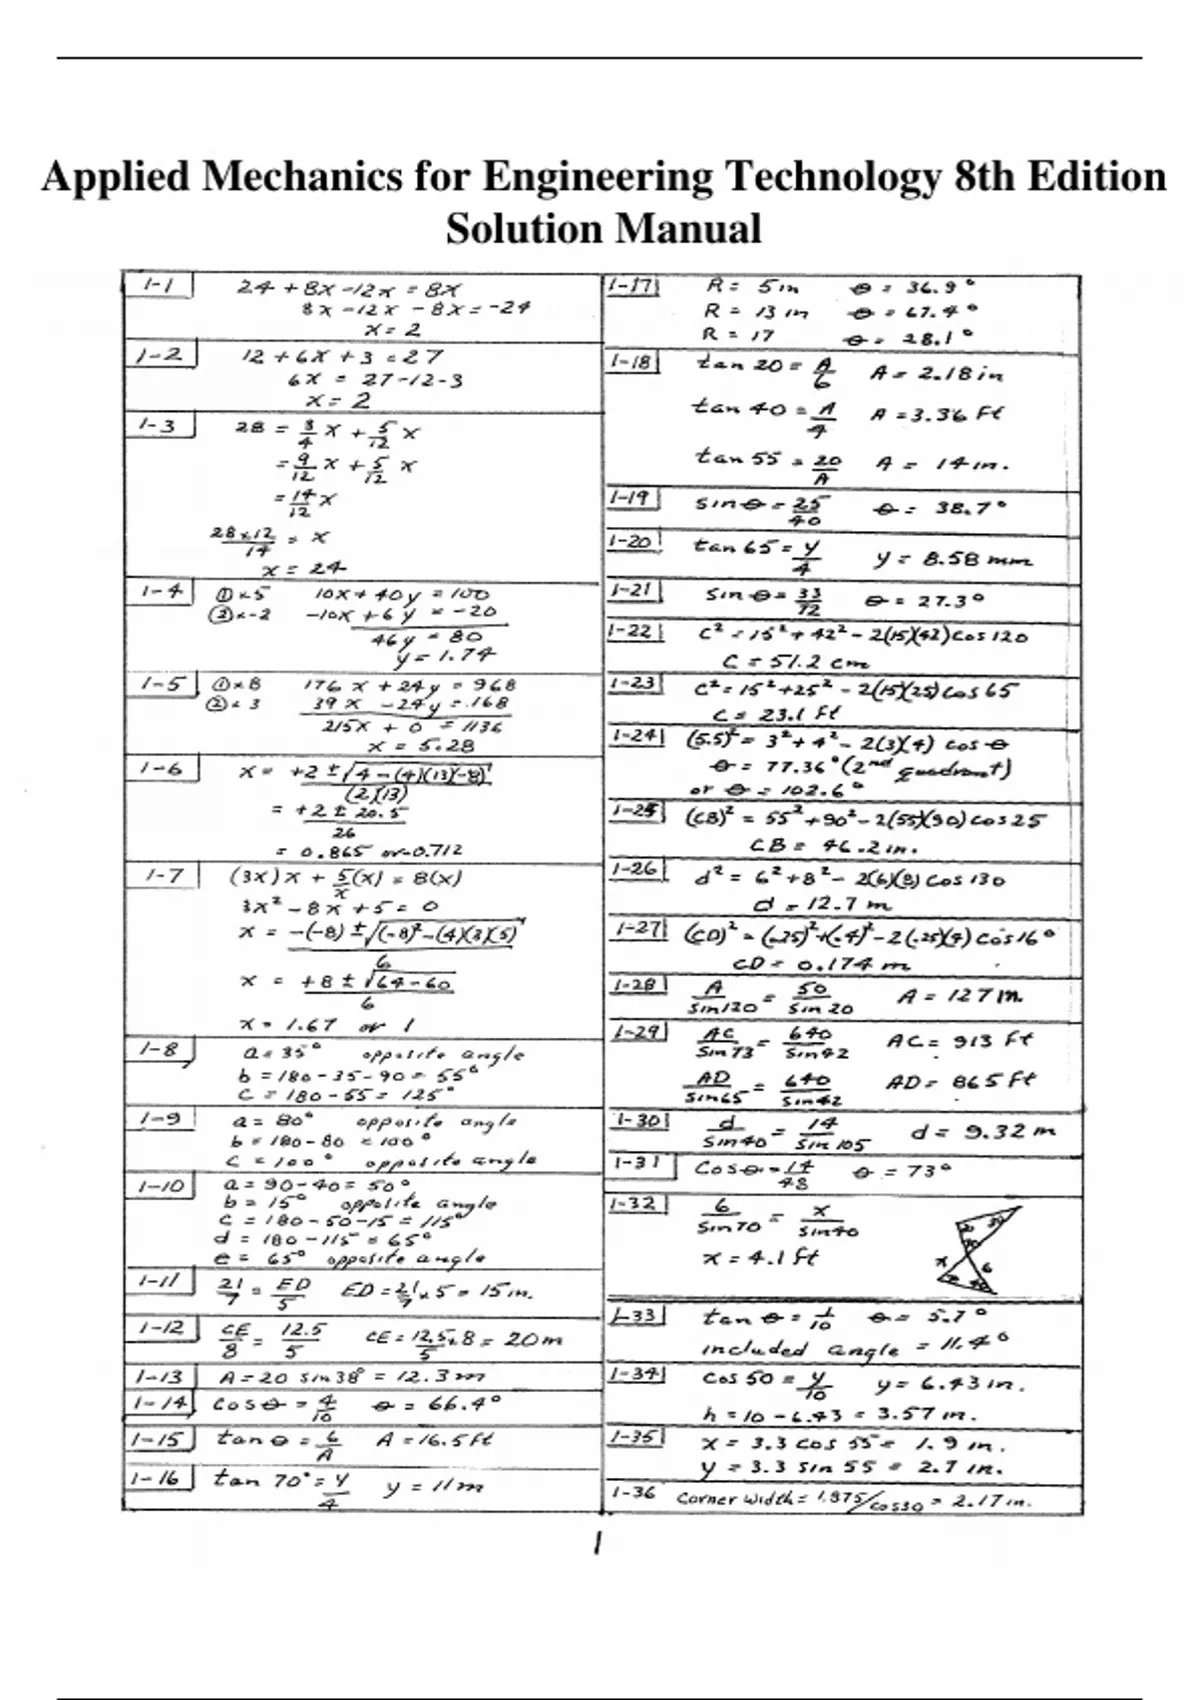 Applied Mechanics for Engineering Technology 8th Edition
Solution Manual
1-1 24 + 8x - 12x = 8x
8x - 12x - 8x = -24
x = 2
1-2 12 + 6x + 3 = 27
6x = 27 - 12 - 3
x = 2
1-3 28 = 3/4 x + 5/12 x
= 9/12 x + 5/12 x
= 14/12 x
28 x 12/14 = x
x = 24
1-4 ① x 5 10x + 40y = 100
② x -2 -10x + 6y = -20
46y = 80
y = 1.74
1-5 ① x 8 176x + 24y = 968
② x 3 39x - 24y = 168
215x + 0 = 1136
x = 5.28
1-6 x = +2 ± √4 - (4)(13)(-8) / (2)(13)
= +2 ± 20.5 / 26
= 0.865 or -0.712
1-7 (3x)x + 5/x (x) = 8(x)
3x² - 8x + 5 = 0
x = -(-8) ± √(-8)² - (4)(3)(5) / 6
x = +8 ± √64 - 60 / 6
x = 1.67 or 1
1-8 a = 35° opposite angle
b = 180 - 35 - 90 = 55°
c = 180 - 55 = 125°
1-9 a = 80° opposite angle
b = 180 - 80 = 100°
c = 100° opposite angle
1-10 a = 90 - 40 = 50°
b = 15° opposite angle
c = 180 - 50 - 15 = 115°
d = 180 - 115 = 65°
e = 65° opposite angle
1-11 21/7 = ED/5 ED = 21/7 x 5 = 15 in.
1-12 CE/8 = 12.5/5 CE = 12.5/5 x 8 = 20 m
1-13 A = 20 sin 38° = 12.3 m
1-14 cos θ = 4/10 θ = 66.4°
1-15 tan θ = 6/A A = 16.5 ft
1-16 tan 70° = y/4 y = 11 m
1-17 R = 5 in θ = 36.9°
R = 13 in θ = 67.4°
R = 17 θ = 28.1°
1-18 tan 20 = A/6 A = 2.18 in
tan 40 = A/4 A = 3.36 ft
tan 55 = 20/A A = 14 in.
1-19 sin θ = 25/40 θ = 38.7°
1-20 tan 65 = y/4 y = 8.58 mm
1-21 sin θ = 33/72 θ = 27.3°
1-22 c² = 15² + 42² - 2(15)(42) cos 120
c = 51.2 cm
1-23 c² = 15² + 25² - 2(15)(25) cos 65
c = 23.1 ft
1-24 (5.5)² = 3² + 4² - 2(3)(4) cos θ
θ = 77.36° (2nd quadrant)
or θ = 102.6°
1-25 (CB)² = 55² + 90² - 2(55)(90) cos 25
CB = 46.2 in.
1-26 d² = 6² + 8² - 2(6)(8) cos 130
d = 12.7 m
1-27 (CD)² = (.25)² + (.4)² - 2(.25)(.4) cos 16°
CD = 0.174 m
1-28 A/sin 120 = 50/sin 20 A = 127 m
1-29 AC/sin 73 = 640/sin 42 AC = 913 ft
AD/sin 65 = 640/sin 42 AD = 865 ft
1-30 d/sin 40 = 14/sin 105 d = 9.32 m
1-31 cos θ = 14/48 θ = 73°
1-32 6/sin 70 = x/sin 40
x = 4.1 ft
x 6
1-33 tan θ = 1/10 θ = 5.7°
included angle = 11.4°
1-34 cos 50 = y/10 y = 6.43 in.
h = 10 - 6.43 = 3.57 in.
1-35 x = 3.3 cos 55 = 1.9 in.
y = 3.3 sin 55 = 2.7 in.
1-36 corner width = 1.875/cos 30 = 2.17 in.
1